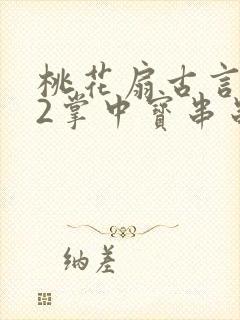 桃花扇古言
2掌中寶串
納差